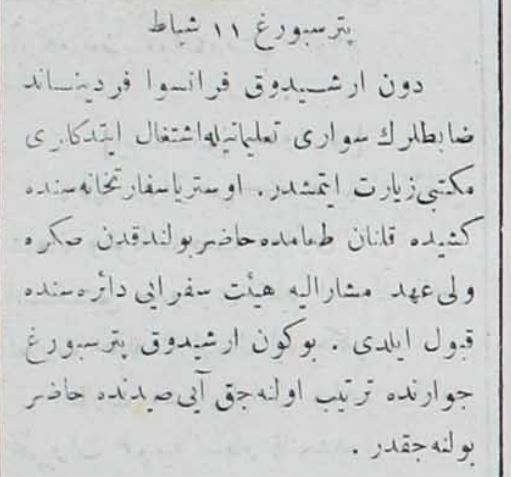 پترسبورغ ١١ شباط
دون ارشـيدوق فرانسوا فردينـاند
ضابطلرك سوارى تعليماتيله اشتغال ايتدكلرى
مكتبى زيارت ايتمشدر. اوستريا سفارتخانه سنده
كشيده قلنان طعامده حاضر بولندقدن صكره
ولى عهد مشاراليه هيئت سفرايى دائره سنده
قبول ايلدى . بوكون ارشيدوق پترسبورغ
جوارنده ترتيب اولنه جق آيى صيدنده حاضر
بولنه جقدر .